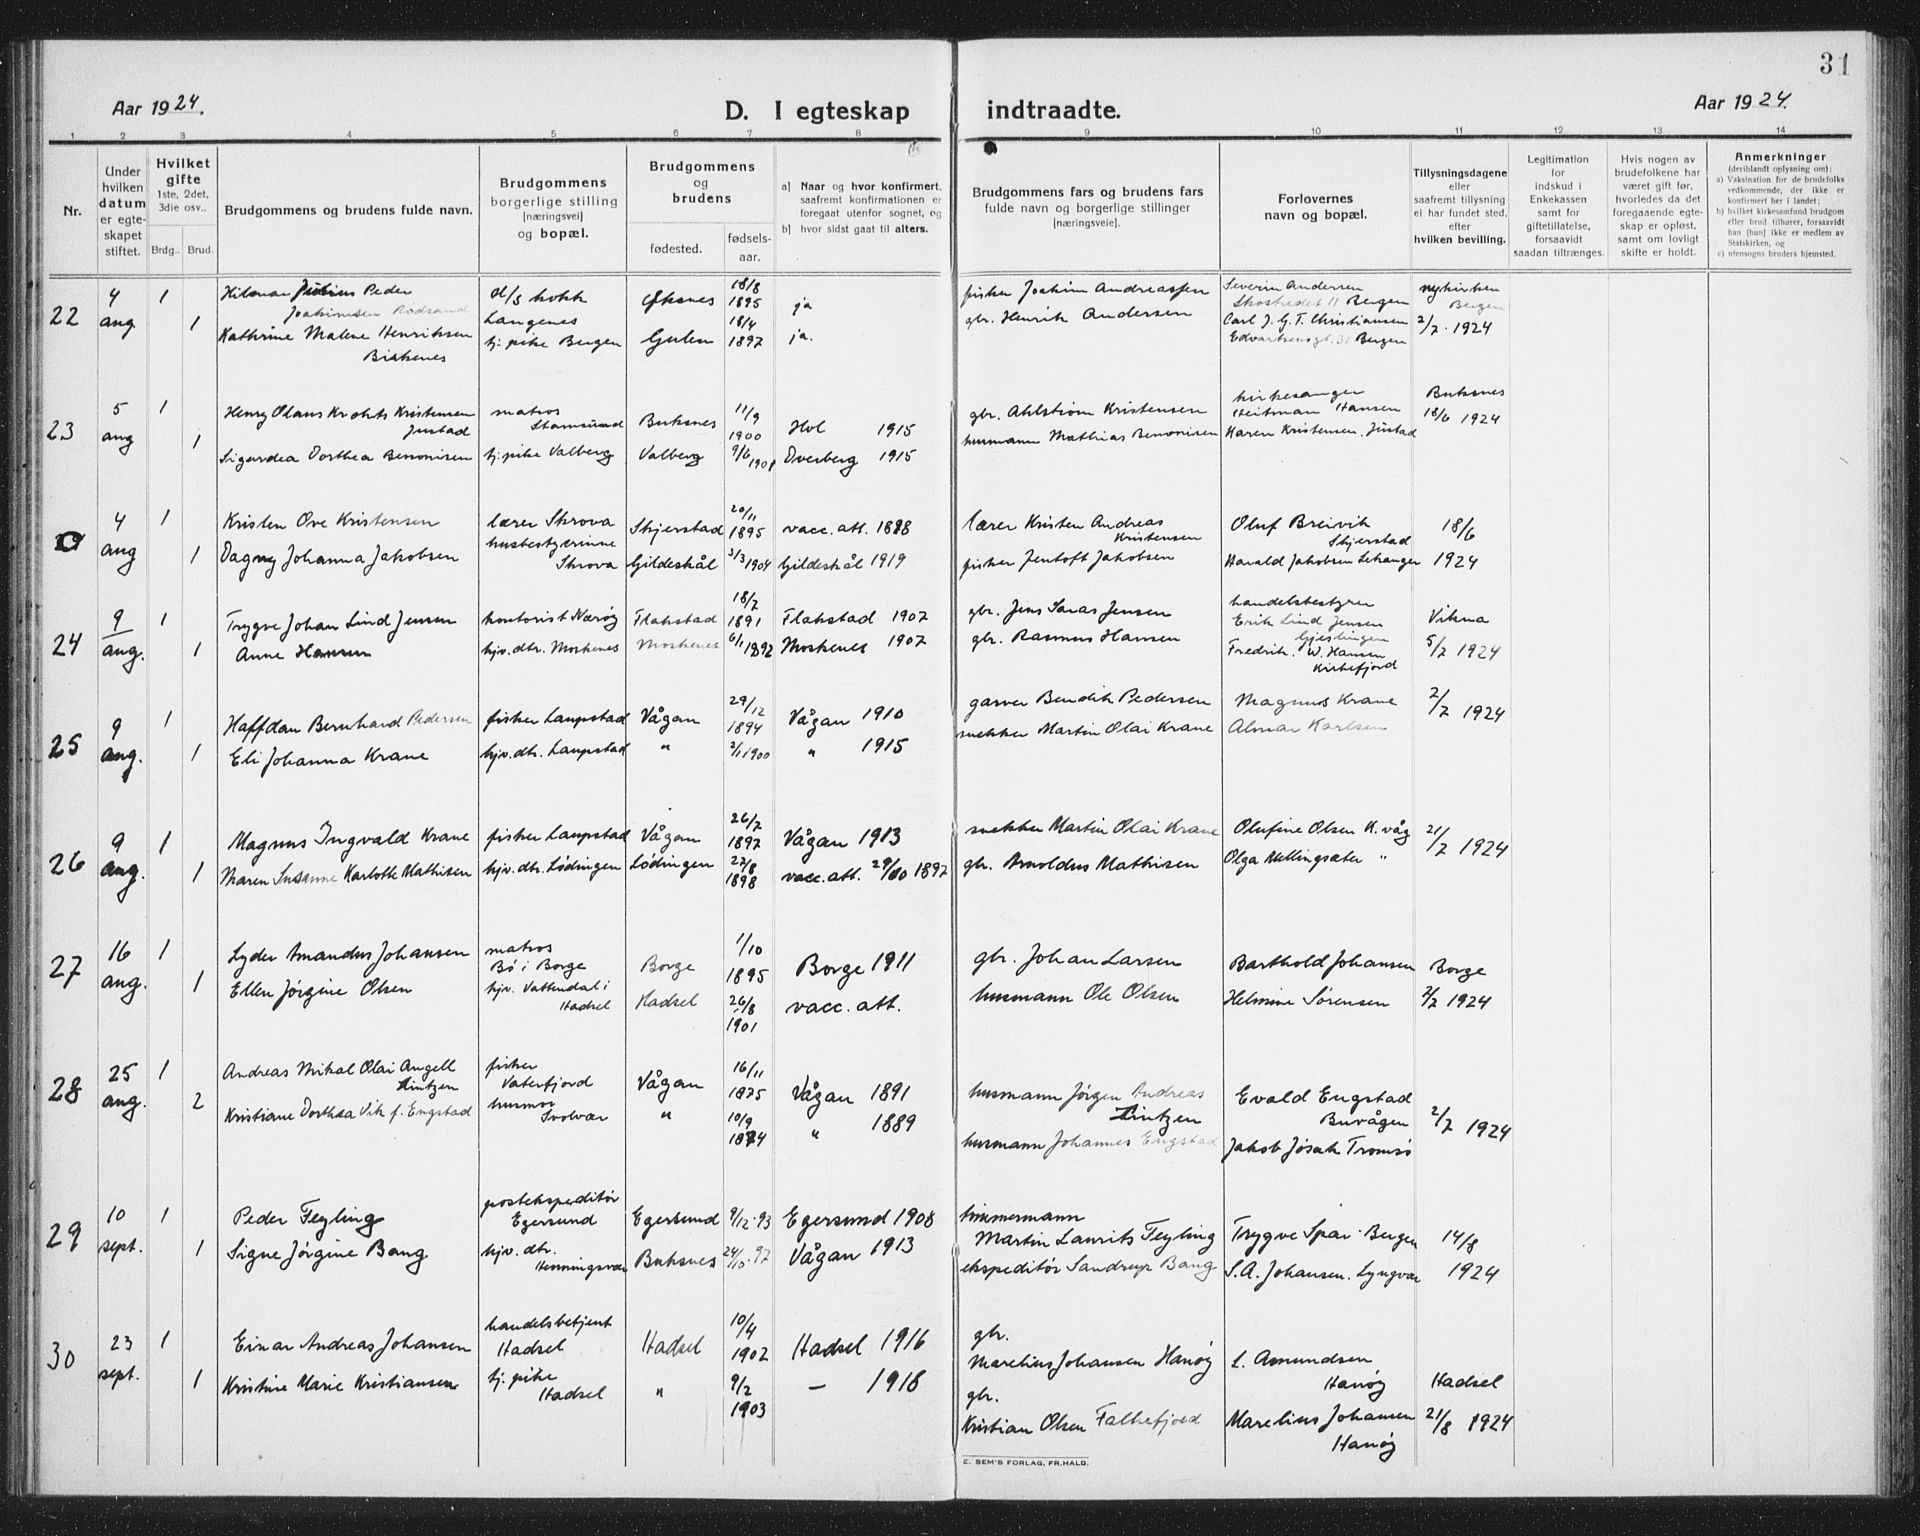 31
Aar 1924.
D. I egteskap indtraadte.
Aar 1924.
1 2 3 4 5 6 7 8 9 10 11 12 13 14
Nr.
Under hvilken datum er egteskapet stiftet.
Hvilket gifte 1ste, 2det, 3die osv..
Brdg.. Brud.
Brudgommens og brudens fulde navn.
Brudgommens borgerlige stilling [næringsvei] og bopæl.
Brudgommens og brudens
fødested.
fødsels-aar.
a] Naar og hvor konfirmert, saafremt konfirmationen er foregaat utenfor sognet, og
b] hvor sidst gaat til alters.
Brudgommens fars og brudens fars fulde navn og borgerlige stillinger [næringsveie].
Forlovernes navn og bopæl.
Tillysningsdagene eller saafremt tillysning ei har fundet sted, efter hvilken bevilling.
Legitimation for indskud i Enkekassen samt for giftetillatelse, forsaavidt saadan tiltrænges.
Hvis nogen av brudefolkene har været gift før, hvorledes da det foregaaende egteskap er opløst, samt om lovligt skifte er holdt.
Anmerkninger (deriblandt oplysning om):
a) Vaksination for de brudefolks vedkommende, der ikke er konfirmert her i landet;
b) hvilket kirkesamfund brudgom eller brud tilhører, forsaavidt han [hun] ikke er medlem av Statskirken, og
c) utensogns bruders hjemsted.
22 4 aug 1 Hilmar Julius Peder Joakimsen Rødsand d/s kokk Langenes Øksnes 18/8 1895 ja fisker Joakim Andreassen Severin Andersen Skostredet 11 Bergen Nykirken Bergen
1 Kathrine Malene Henriksen Birkenes tj. pike Bergen Gulen 18/4 1897 ja. gbr. Henrik Andersen Carl J. G. T. Christiansen Edvardsensgt. 31 Bergen 2/7. 1924
23 5 aug 1 Henry Olaus Krohts Kristensen Justad matros Stamsund Buksnes 11/9 1900 Hol 1915 gbr. Ahlstrøm Kristensen kirkesanger Heitman Hansen Buksnes
1 Sigurdea Dorthea Benonisen tj. pike Valberg Valberg 9/6 1901 Overberg 1915 husmann Mathias Benonisen Karen Kristensen, Justad 18/6 1924
4 aug 1 Kristen Ove Kristensen lærer Skrova Skjerstad 20/11 1895 vacc. att. 1898 lærer Kristen Andreas Kristensen Oluf Breivik Skjerstad 18/6
1 Dagny Johanna Jakobsen husbestyrerinne Skrova Gildeskål 3/3 1904 Gildeskål 1919 fisker Jentoft Jakobsen Harald Jakobsen Lekanger 1924
24 9 aug. 1 Trygve Johan Lind Jensen kontorist Nærøy Flakstad 18/7 1891 Flakstad 1907 gbr. Jens Saras Jensen handelsbestyrer Erik Lind Jensen Gjeslingen Vikna
1 Anne Hansen hjv. dtr. Moskenes Moskenes 6/1 1892 Moskenes 1907 gbr. Rasmus Hansen Fredrik. W. Hansen Kirkefjord 5/7 1924
25 9 aug. 1 Halfdan Bernhard Pedersen fisker Laupstad Vågan 29/12 1894 Vågan 1910 garver Bendik Pedersen Magnus Krane 2/7 1924
1 Eli Johanna Krane hjv. dtr. Laupstad " 2/1 1900 " 1915 snekker Martin Olai Krane Almar Karlsen
26 9 aug. 1 Magnus Ingvald Krane fisker Laupstad Vågan 26/7 1897 Vågan 1913 snekker Martin Olai Krane Olufine Olsen K.våg 21/7 1924
1 Maren Susanne Karlotte Mathisen hjv. dtr. Lødingen Lødingen 27/8 1898 vacc. att. 29/10 1897 gbr. Arnoldus Mathisen Olga Mellingsæter "
27 16 aug. 1 Lyder Amandus Johansen matros Bø i Borge Borge 1/10 1895 Borge 1911 gbr. Johan Larsen Barthold Johansen Borge
1 Ellen Jørgine Olsen hjv. Vattendal i Hadsel Hadsel 26/8 1901 vacc. att. husmann Ole Olsen Helmine Sørensen 2/7 1924
28 25 aug. 1 Andreas Mikal Olai Angell Lintzen fisker Vaterfjord Vågan 16/11 1875 Vågan 1891 husmann Jørgen Andreas Lintzen Evald Engstad Buvågen 2/7 1924
2 Kristiane Dorthea Vik f. Engstad husmor Svolvær " 10/9 1874 " 1889 husmann Johannes Engstad Jakob Jøsok Tromsø
29 10 sept. 1 Peder Feyling postekspeditør Egersund Egersund 9/12-93 Egersund 1908 timmermann Martin Laurits Feyling Trygve Spar Bergen 14/8
1 Signe Jørgine Bang hjv. dtr. Henningsvær Buksnes 24/10-97 Vågan 1913 ekspeditør Sandrup Bang S. A. Johansen. Lyngvær 1924
30 23 sept. 1 Einar Andreas Johansen handelsbetjent Hadsel Hadsel 10/4 1902 Hadsel 1916 gbr. Marelius Johansen Hanøy L. Amundsen Hanøy Hadsel
1 Kristine Marie Kristiansen tj. pike Hadsel " 9/2 1903 — 1918 gbr. Kristian Olsen Falkefjord Marelius Johansen Hanøy 21/8 1924
E. SEM'S FORLAG, FR.HALD.